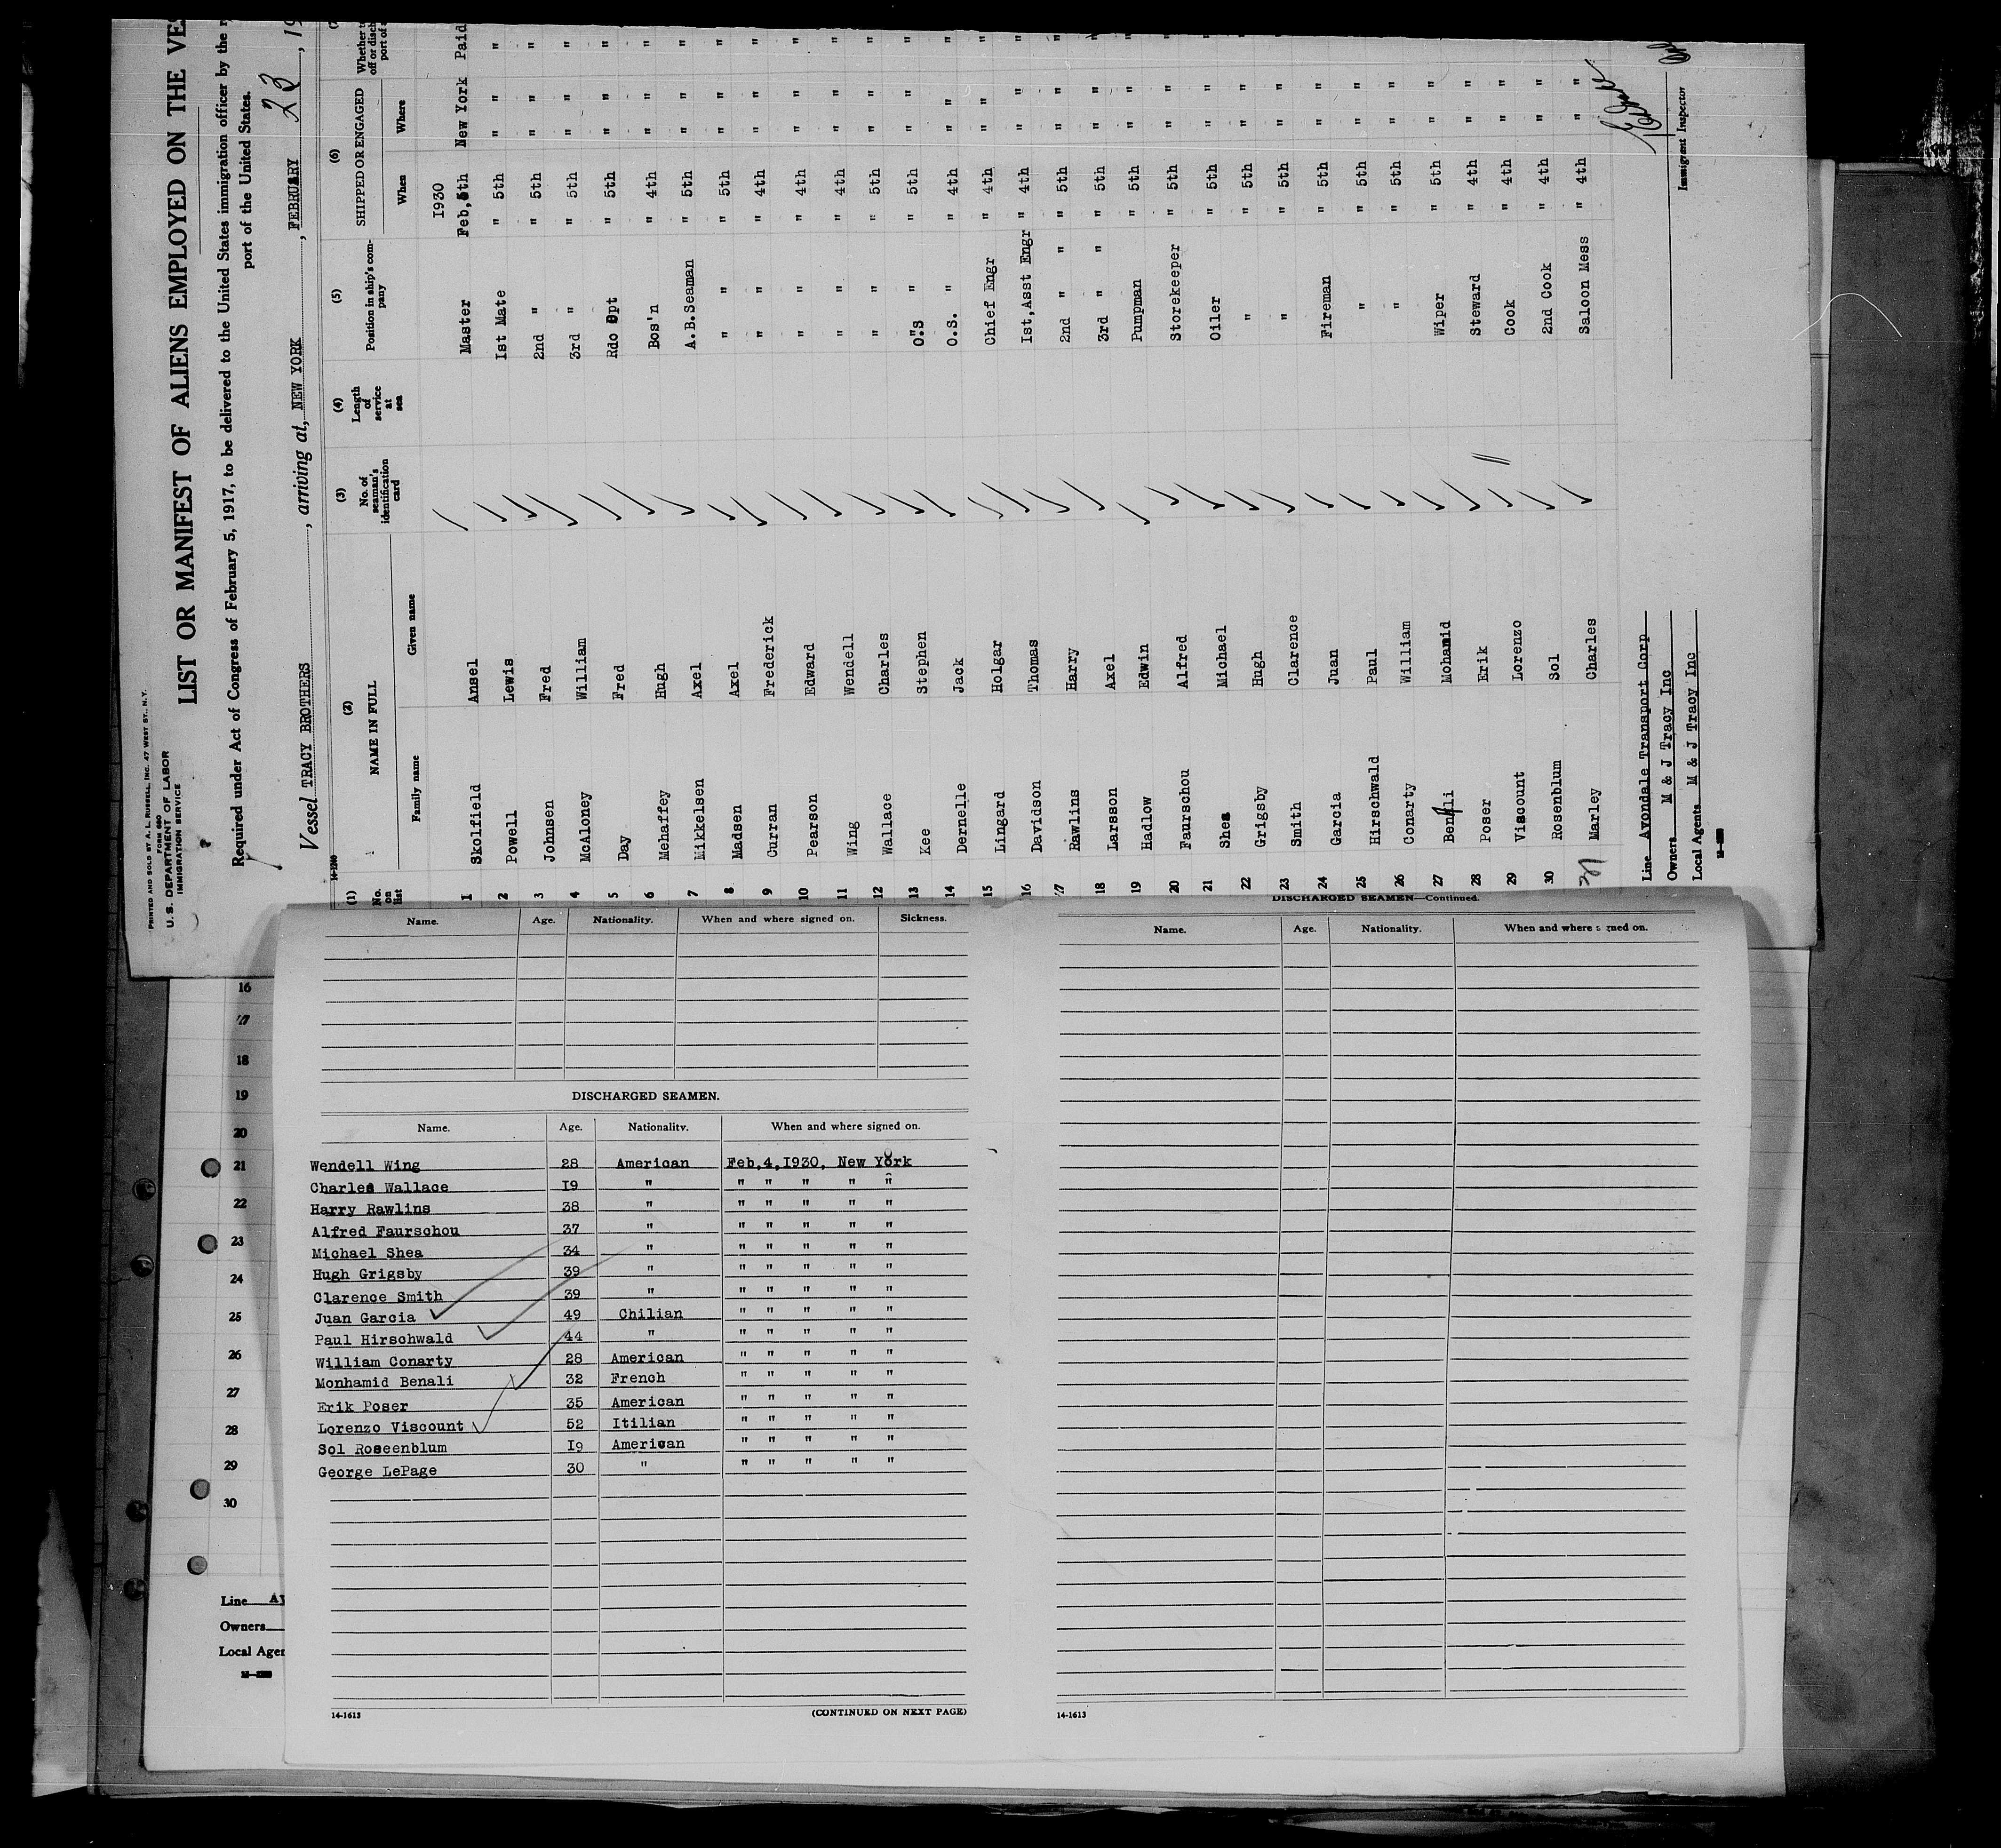 PRINTED AND SOLD BY A. L. RUSSELL, INC. 47 WEST ST., N.Y.
FORM 680
U. S. DEPARTMENT OF LABOR
IMMIGRATION SERVICE
LIST OR MANIFEST OF ALIENS EMPLOYED ON THE
Required under Act of Congress of February 5, 1917, to be delivered to the United States immigration officer by the
port of the United States.
Vessel TRACY BROTHERS, arriving at, NEW YORK, FEBRUARY 23, 19
(1) No. on list (2) NAME IN FULL (3) No. of seaman's identification card (4) Length of service at sea (5) Position in ship's company (6) SHIPPED OR ENGAGED
Family name Given name When Where
1930
1 Skolfield Ansel Master Feb,5th New York Paid
2 Powell Lewis Ist Mate " 5th " " "
3 Johnsen Fred 2nd " " 5th " " "
4 McAloney William 3rd " " 5th " " "
5 Day Fred Rdo Opt " 5th " " "
6 Mehaffey Hugh Bos'n " 4th " " "
7 Mikkelsen Axel A.B.Seaman " 5th " " "
8 Madsen Axel " " " 5th " " "
9 Curran Frederick " " " 4th " " "
10 Pearson Edward " " " 4th " " "
11 Wing Wendell " " " 4th " " "
12 Wallace Charles " " " 5th " " "
13 Kee Stephen O.S " " 5th " " "
14 Dernelle Jack O.S. " " 4th " " "
15 Lingard Holgar Chief Engr " 4th " " "
16 Davidson Thomas Ist,Asst Engr " 4th " " "
17 Rawlins Harry 2nd " " " 5th " " "
18 Larsson Axel 3rd " " " 5th " " "
19 Hadlow Edwin Pumpman " 5th " " "
20 Faurschou Alfred Storekeeper " 5th " " "
21 Shea Michael Oiler " 5th " " "
22 Grigsby Hugh " " 5th " " "
23 Smith Clarence " " 5th " " "
24 Garcia Juan Fireman " 5th " " "
25 Hirschwald Paul " " 5th " " "
26 Conarty William " " 5th " " "
27 Benali Mohamid Wiper " 5th " " "
28 Poser Erik Steward " 4th " " "
29 Viscount Lorenzo Cook " 4th " " "
30 Rosenblum Sol 2nd Cook " 4th " " "
31 Marley Charles Saloon Mess " 4th " " "
Line Avondale Transport Corp
Owners M & J Tracy Inc
Local Agents M & J Tracy Inc
Immigrant Inspector
Name. Age. Nationality. When and where signed on. Sickness.
DISCHARGED SEAMEN.
Name. Age. Nationality. When and where signed on.
Wendell Wing 28 American Feb,4,1930, New York
Charles Wallace 19 " " " " " "
Harry Rawlins 38 " " " " " "
Alfred Faurschou 37 " " " " " "
Michael Shea 34 " " " " " "
Hugh Grigsby 39 " " " " " "
Clarence Smith 39 " " " " " "
Juan Garcia 49 Chilian " " " " "
Paul Hirschwald 44 " " " " " "
William Conarty 28 American " " " " "
Monhamid Benali 32 French " " " " "
Erik Poser 35 American " " " " "
Lorenzo Viscount 52 Itilian " " " " "
Sol Roseenblum 19 American " " " " "
George LePage 30 " " " " " "
14-1613 (CONTINUED ON NEXT PAGE)
DISCHARGED SEAMEN—Continued.
Name. Age. Nationality. When and where signed on.
14-1613
16
17
18
19
20
21
22
23
24
25
26
27
28
29
30
Line
Owners
Local